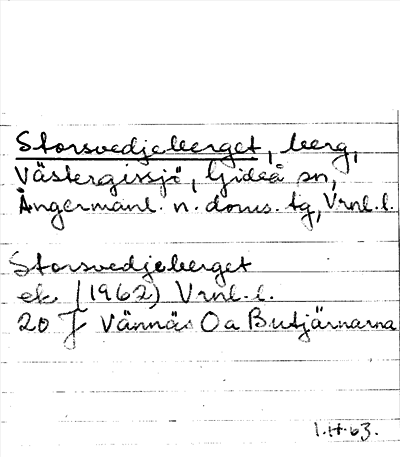 Storsvedjeberget, berg,
Västergissjö, Gideå sn,
Ångermanl. n. doms. tg, Vrnl. l.
Storsvedjeberget
ek. (1962) Vrnl. l.
20 J Vännäs 0a Butjärnarna
1.H.63.